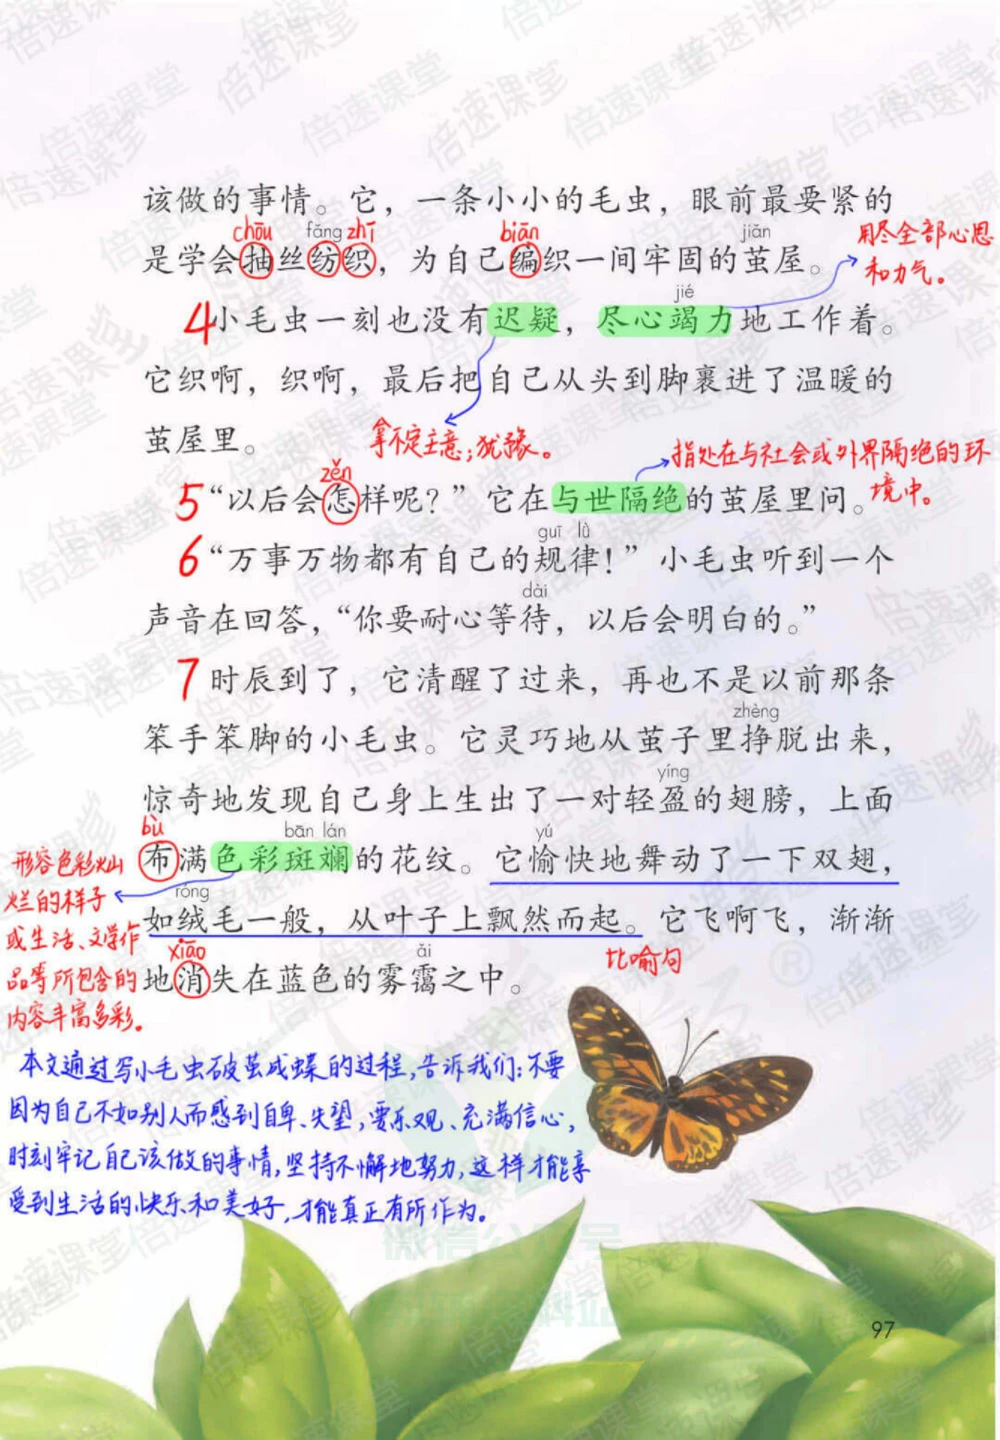 该做的事情。它，一条小小的毛虫，眼前最要紧的
chōu fǎng zhī biān jiān
是学会抽丝纺织，为自己编织一间牢固的茧屋。
用尽全部心思
和力气。
jié
4小毛虫一刻也没有迟疑，尽心竭力地工作着。
它织啊，织啊，最后把自己从头到脚裹进了温暖的
茧屋里。
拿不定主意；犹豫。
指处在与社会或外界隔绝的环
境中。
zěn
5“以后会怎样呢？”它在与世隔绝的茧屋里问。
guī lǜ
6“万事万物都有自己的规律！”小毛虫听到一个
dài
声音在回答，“你要耐心等待，以后会明白的。”
7时辰到了，它清醒了过来，再也不是以前那条
zhèng
笨手笨脚的小毛虫。它灵巧地从茧子里挣脱出来，
yíng
惊奇地发现自己身上生出了一对轻盈的翅膀，上面
bù bān lán yú
布满色彩斑斓的花纹。它愉快地舞动了一下双翅，
róng
如绒毛一般，从叶子上飘然而起。它飞啊飞，渐渐
xiāo ǎi
地消失在蓝色的雾霭之中。
比喻句
形容色彩灿
烂的样子
或生活、文学作
品等所包含的
内容丰富多彩。
本文通过写小毛虫破茧成蝶的过程，告诉我们：不要
因为自己不如别人而感到自卑、失望，要乐观、充满信心，
时刻牢记自己该做的事情，坚持不懈地努力，这样才能享
受到生活的快乐和美好，才能真正有所作为。
微信公众号
97
倍速课堂